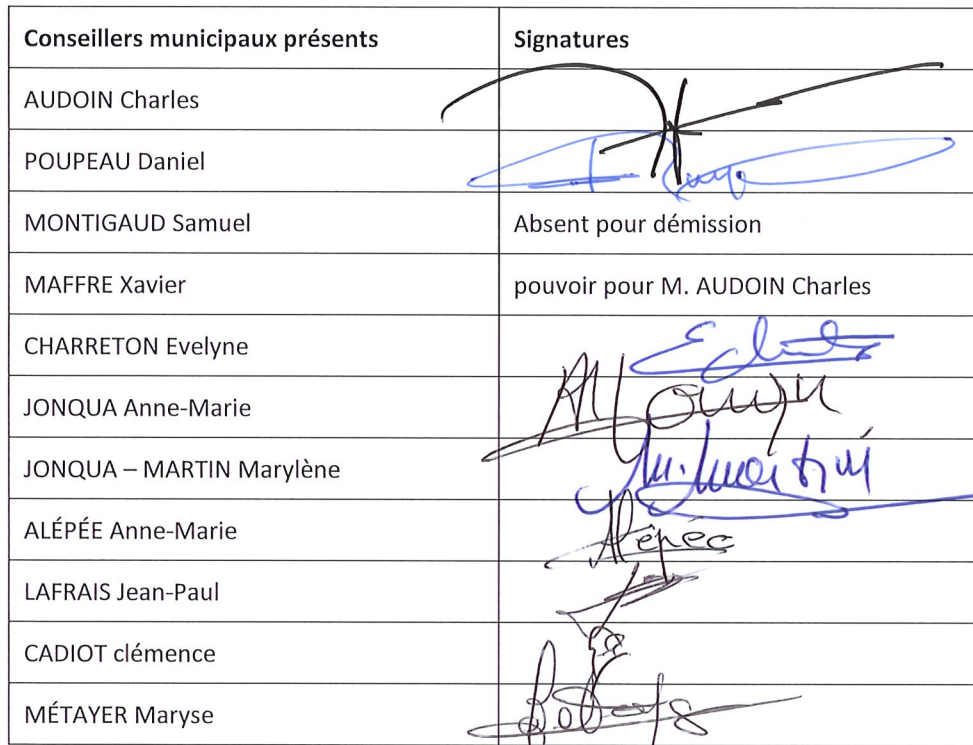 Conseillers municipaux présents Signatures
AUDOIN Charles
POUPEAU Daniel
MONTIGAUD Samuel Absent pour démission
MAFFRE Xavier pouvoir pour M. AUDOIN Charles
CHARRETON Evelyne
JONQUA Anne-Marie
JONQUA – MARTIN Marylène
ALÉPÉE Anne-Marie Alépée
LAFRAIS Jean-Paul
CADIOT clémence
MÉTAYER Maryse